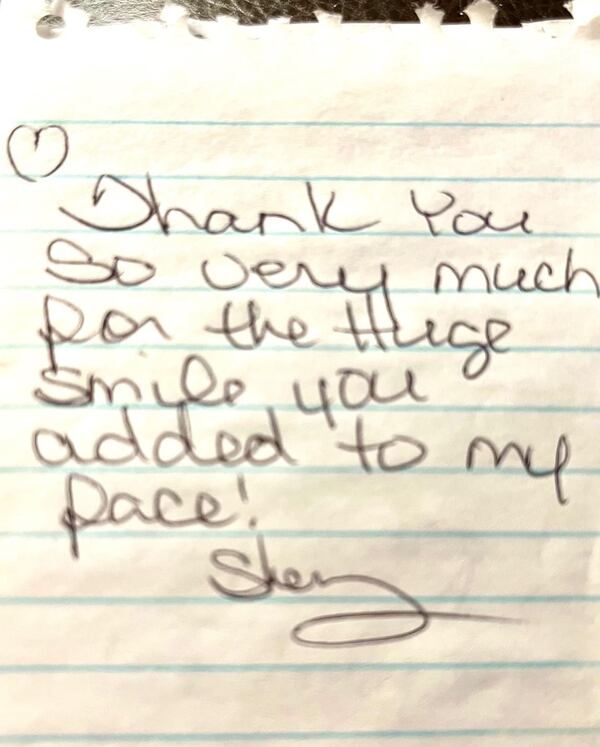 Thank You
So very much
for the Huge
smile you
added to my
face!